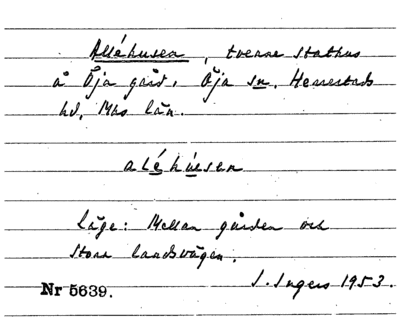 Alléhusen, tvenne stathus
å Öja gård, Öja sn, Herrestads
hd, Mhs län.
aléhúsen
Läge: Mellan gården och
stora landsvägen.
I. Ingers 1953.
Nr 5639.